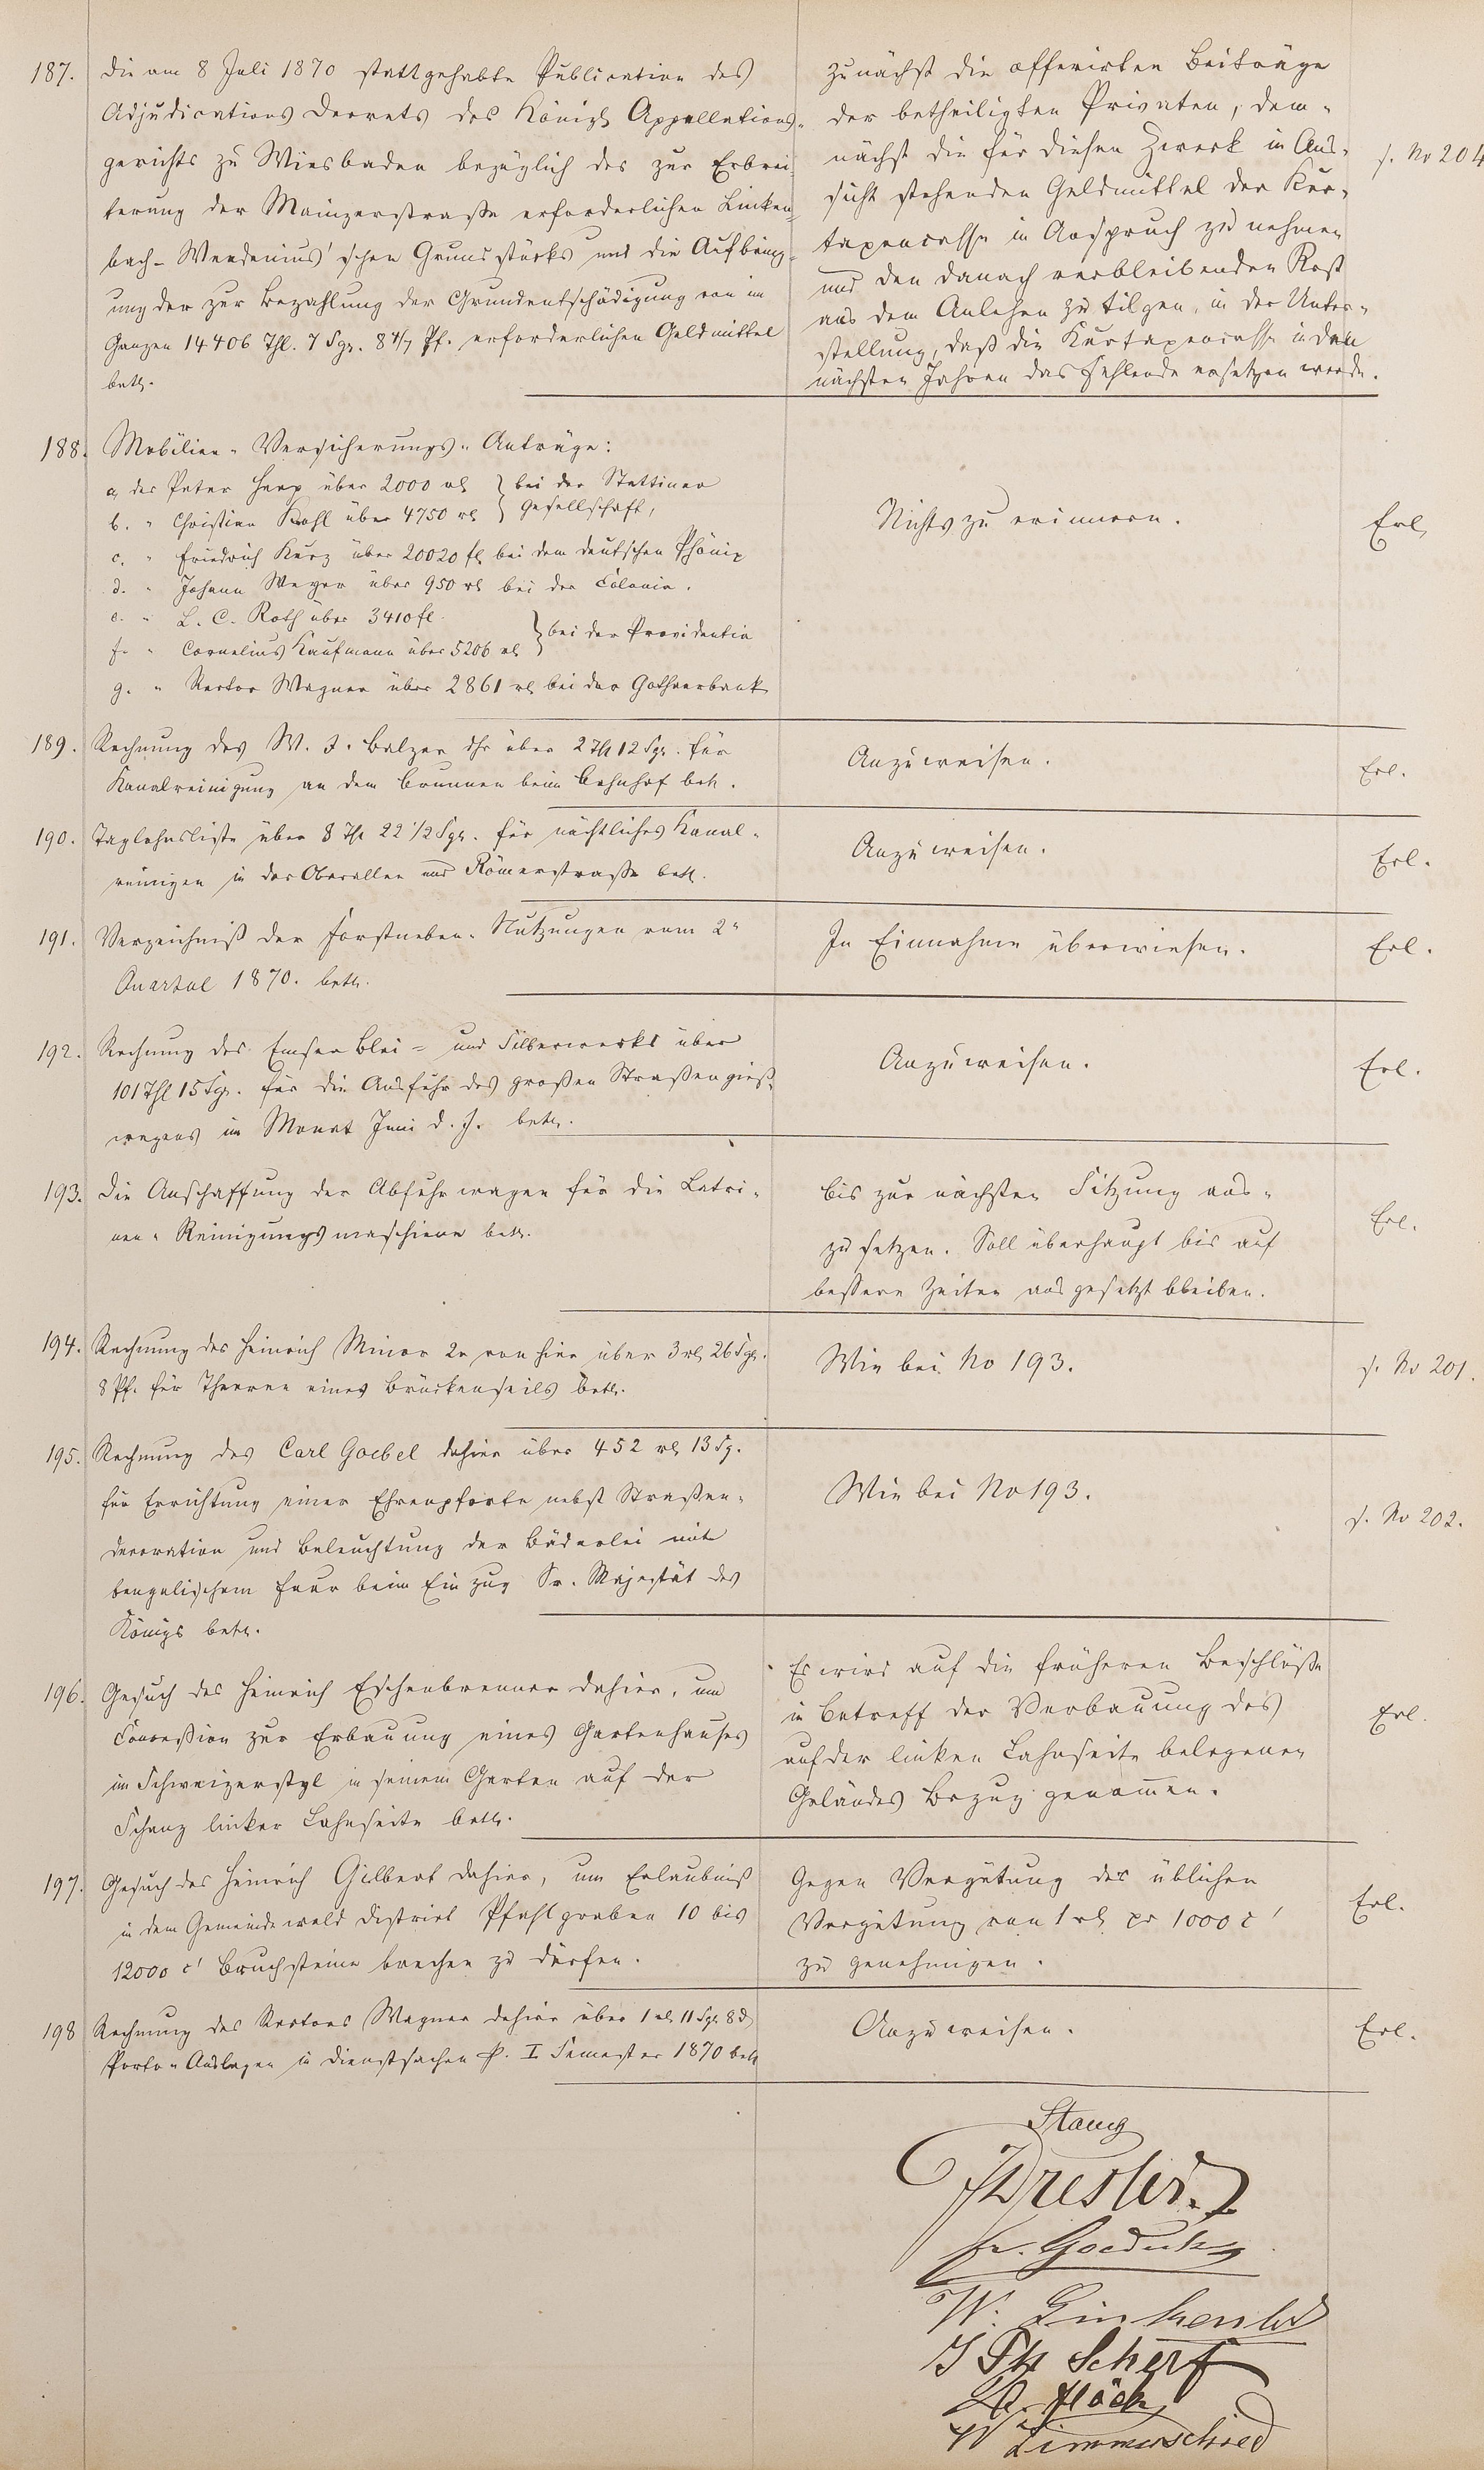 187. Die am 8 Juli 1870 stattgehabte Publication des
Adjudications Decrets des Königl Appellations-
gerichts zu Wiesbaden bezüglich des zur Erbrei-
terung der Mainzerstraße erforderlichen Linken-
bach-Wendenius'schen Grundstücks und die Aufbring-
ung der zur Bezahlung der Grundentschädigung von im
Ganzen 14406 Thl. 7 Sgr. 8 4/7 Pf. erforderlichen Geldmittel
betr.
zunächst die offerirten Beiträge
der betheiligten Privaten, dem-
nächst die für diesen Zweck in Aus-
sicht stehenden Geldmittel der Kur-
taxencasse in Anspruch zu nehmen
und den danach verbleibenden Rest
aus dem Anlehen zu tilgen, in der Unter-
stellung, daß die Kurtaxencasse in den
nächsten Jahren das Fehlende ersetzen werde.
s. No 204
188. Mobilien-Versicherungs-Anträge:
a, des Peter Herx über 2000 rl } bei der Stettiner
b. " Christian Kohl über 4750 rl } Gesellschaft,
c. " Friedrich Kurz über 20020 fl bei dem deutschen Phönix
d. " Johann Meyer über 950 rl bei der Colonia.
e. " L. C. Roth über 3410 fl
f. " Cornelius Kaufmann über 5206 rl } bei der Providentia
g. " Rector Wagner über 2861 rl bei der Gothaerbank
Nichts zu erinnern.
Erl.
189. Rechnung des W. J. Balzer Ihr über 2 Th 12 Sgr. für
Kanalreinigung an dem Brunnen beim Bahnhof betr.
Anzuweisen.
Erl.
190. Taglohnsliste über 8 Th 22 1/2 Sgr. für nächtliches Kanal-
reinigen in der Oberallee und Römerstraße betr.
Anzuweisen.
Erl.
191. Verzeichniß der Forstneben-Nutzungen vom 2n
Quartal 1870. betr.
In Einnahme überwiesen.
Erl.
192. Rechnung des Emser Blei- und Silberwerks über
101 Thl 15 Sgr. für die Ausfuhr des großen Straßengieß-
wagens im Monat Juni d. J. betr.
Anzuweisen.
Erl.
193. Die Anschaffung der Abfuhrwagen für die Latri-
nen-Reinigungsmaschiene betr.
Bis zur nächsten Sitzung aus-
zusetzen. Soll überhaupt bis auf
bessere Zeiten ausgesetzt bleiben.
Erl.
194. Rechnung des Heinrich Minor 2r von hier über 3 rl 26 Sgr.
8 Pf. für Theeren eines Brückenseils betr.
Wie bei No 193.
s. No 201.
195. Rechnung des Carl Goebel dahier über 452 rl 13 Sg.
für Errichtung einer Ehrenpforte nebst Straßen-
decoration und Beleuchtung der Bäderlei mit
bengalischem Feuer beim Einzug Sr. Majestät des
Königs betr.
Wie bei No 193.
s. No 202.
196. Gesuch des Heinrich Eschenbrenner dahier, um
Concession zur Erbauung eines Gartenhauses
im Schweizerstyl in seinem Garten auf der
Schanz linker Lahnseite betr.
Es wird auf die früheren Beschlüße
in Betreff der Verbauung des
auf der linken Lahnseite belegenen
Geländes Bezug genommen.
Erl.
197. Gesuch des Heinrich Gilbert dahier, um Erlaubniß
in dem Gemeindewald District Pfahlgraben 10 bis
12000 c' Bruchsteine brechen zu dürfen.
Gegen Vergütung der üblichen
Vergütung von 1 rl pr 1000 c'
zu genehmigen.
Erl.
198 Rechnung des Rectors Wagner dahier über 1 rl 11 Sgr 8 d
Porto-Auslagen in Dienstsachen p. I Semester 1870 betr
Anzuweisen.
Erl.
Stang
Fr. Goedecke
W. Linkenbch
J Ph Scherf
Flöck
W Zimmerschied